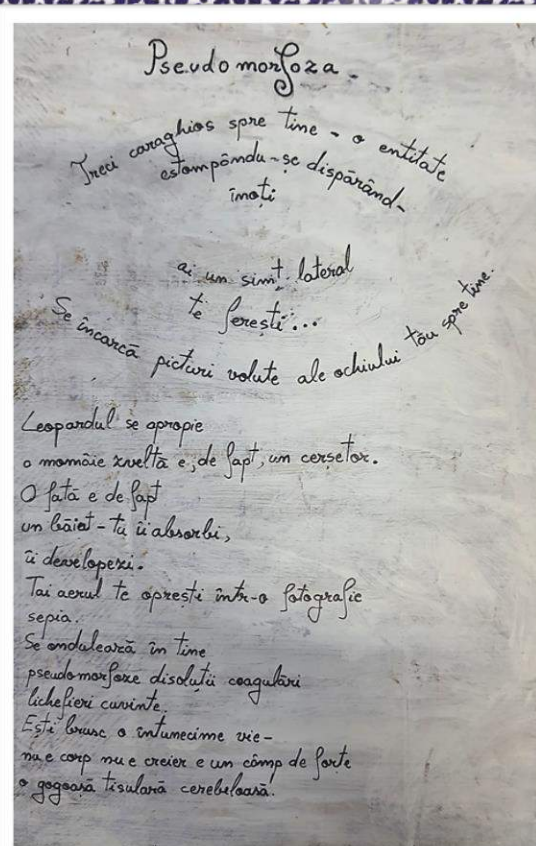 Pseudomorfoza.
Treci caraghios spre tine - o entitate
estompându-se dispărând-
înoţi
ai un simţ lateral
te fereşti...
Se încarcă picturi volute ale ochiului tău spre tine.
Leopardul se apropie
o momâie zveltă e, de fapt, un cerşetor.
O fată e de fapt
un băiat - tu îi absorbi,
îi developezi.
Tai aerul te opreşti într-o fotografie
sepia.
Se ondulează în tine
pseudomorfoze disoluţii coagulări
lichefieri cuvinte.
Eşti brusc o întunecime vie-
nu e corp nu e creier e un câmp de forte
o gogoaşă tisulară cerebeloasă.